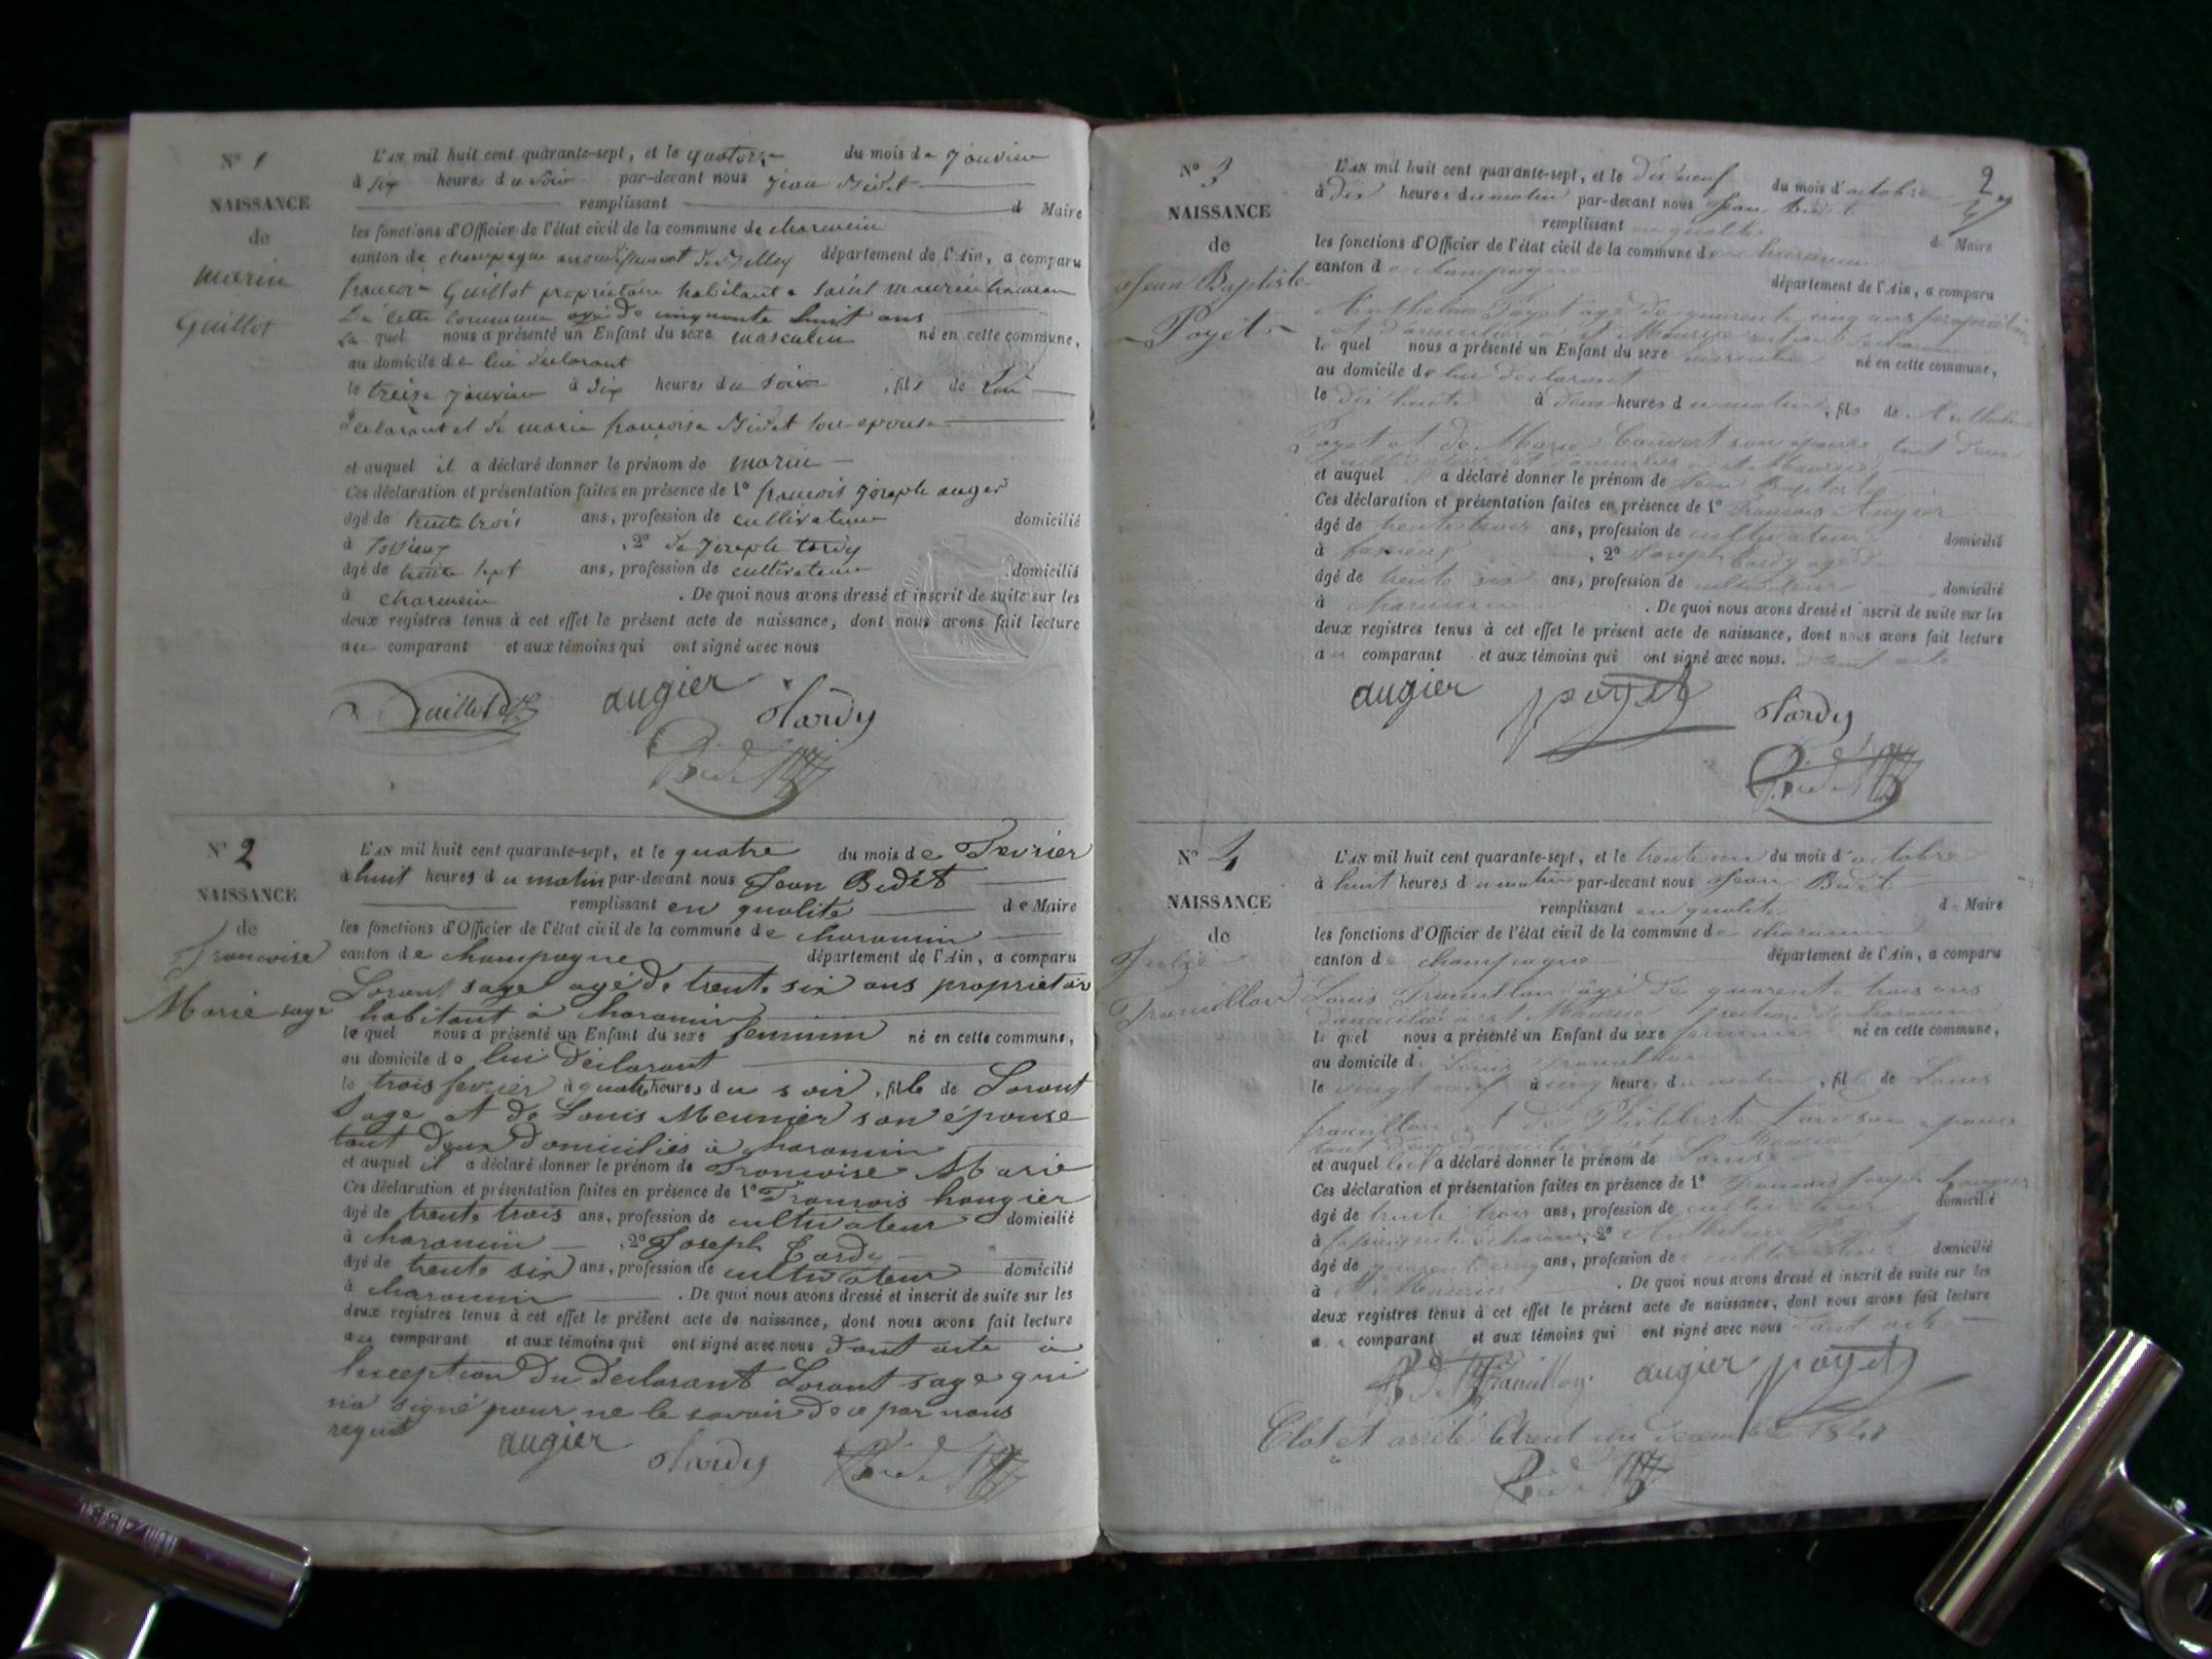 N° 1
NAISSANCE
de
marin
Guillot
L'AN mil huit cent quarante-sept, et le quatorze du mois de janvier
à six heures du soir par-devant nous jean Bidet
remplissant d Maire
les fonctions d'Officier de l'état civil de la commune de
canton de champagne arrondissement de Belley département de l'Ain, a comparu
françois Guillot propriétaire habitant a saint maurice
De cette commune agé de cinquante huit ans
Le quel nous a présenté un Enfant du sexe masculin né en cette commune,
au domicile de lui declarant
le treize janvier à six heures du soir , fils de Lui
declarant et de marie françoise Bidet son epouse
et auquel il a déclaré donner le prénom de marin
Ces déclaration et présentation faites en présence de 1° françois joseph auger
âgé de trente trois ans, profession de cultivateur domicilié
à , 2° de joseph tardy
âgé de trente sept ans, profession de cultivateur domicilié
à . De quoi nous avons dressé et inscrit de suite sur les
deux registres tenus à cet effet le présent acte de naissance, dont nous avons fait lecture
au comparant et aux témoins qui ont signé avec nous
Guillot augier tardy
Bidet
N° 2
NAISSANCE
de
Francoise
Marie sage
L'AN mil huit cent quarante-sept, et le quatre du mois de Fevrier
à huit heures du matin par-devant nous Jean Bidet
remplissant en qualite de Maire
les fonctions d'Officier de l'état civil de la commune de charancin
canton de champagne département de l'Ain, a comparu
Lorant sage agé de trente six ans proprietair
habitant à charancin
le quel nous a présenté un Enfant du sexe feminin né en cette commune,
au domicile de lui déclarant
le trois fevrier à quatre heures du soir , fille de Lorant
sage et de Louis Meunier son épouse
tout deux domiciliés à charancin
et auquel il a déclaré donner le prénom de Francoise Marie
Ces déclaration et présentation faites en présence de 1° Francois hougier
âgé de trente trois ans, profession de cultivateur domicilié
à charancin , 2° Joseph Tardy
âgé de trente six ans, profession de cultivateur domicilié
à charancin . De quoi nous avons dressé et inscrit de suite sur les
deux registres tenus à cet effet le présent acte de naissance, dont nous avons fait lecture
au comparant et aux témoins qui ont signé avec nous dont acte à
lexception du declarant Lorant sage qui
na signé pour ne le savoir de ce par nous
requit
augier tardy Bidet
2
N° 3
NAISSANCE
de
Jean Baptiste
Poyet
L'AN mil huit cent quarante-sept, et le dix neuf du mois d'octobre
à dix heures du matin par-devant nous Jean Bidet
remplissant en qualite d Maire
les fonctions d'Officier de l'état civil de la commune de charancin
canton de champagne département de l'Ain, a comparu
Anthelme Poyet agé de quarente cinq ans proprietaire
et domicilier a st Maurice
le quel nous a présenté un Enfant du sexe masculin né en cette commune,
au domicile de lui declarant
le dix huit à deux heures du matin , fils de Anthelme
Poyet et de Marie son epouse tout deux
domiciliés a st Maurice
et auquel il a déclaré donner le prénom de Jean Baptiste
Ces déclaration et présentation faites en présence de 1° Francois Augier
âgé de trente trois ans, profession de cultivateur domicilié
à , 2° Joseph tardy agé de
âgé de trente six ans, profession de cultivateur domicilié
à charancin . De quoi nous avons dressé et inscrit de suite sur les
deux registres tenus à cet effet le présent acte de naissance, dont nous avons fait lecture
au comparant et aux témoins qui ont signé avec nous. dont acte
augier poyet tardy
Bidet
N° 4
NAISSANCE
de
Trouillon
L'AN mil huit cent quarante-sept, et le trente un du mois d'octobre
à huit heures du matin par-devant nous Jean Bidet
remplissant en qualite de Maire
les fonctions d'Officier de l'état civil de la commune de charancin
canton de champagne département de l'Ain, a comparu
Louis Trouillon âgé de quarente trois ans
domicilié a st Maurice section de charancin
le quel nous a présenté un Enfant du sexe feminin né en cette commune,
au domicile de Louis Trouillon
le vingt neuf à cinq heures du matin , fille de Louis
Trouillon et de Philiberte son epouse
tout deux domicilier a st Maurice
et auquel il a déclaré donner le prénom de
Ces déclaration et présentation faites en présence de 1° Francois Joseph hougier
âgé de trente trois ans, profession de cultivateur domicilié
à , 2° Anthelme Poyet
âgé de quarente cinq ans, profession de cultivateur domicilié
à st Maurice . De quoi nous avons dressé et inscrit de suite sur les
deux registres tenus à cet effet le présent acte de naissance, dont nous avons fait lecture
au comparant et aux témoins qui ont signé avec nous dont acte
Bidet Trouillon augier poyet
Clot et arrété le trent un decembre 1847
Bidet